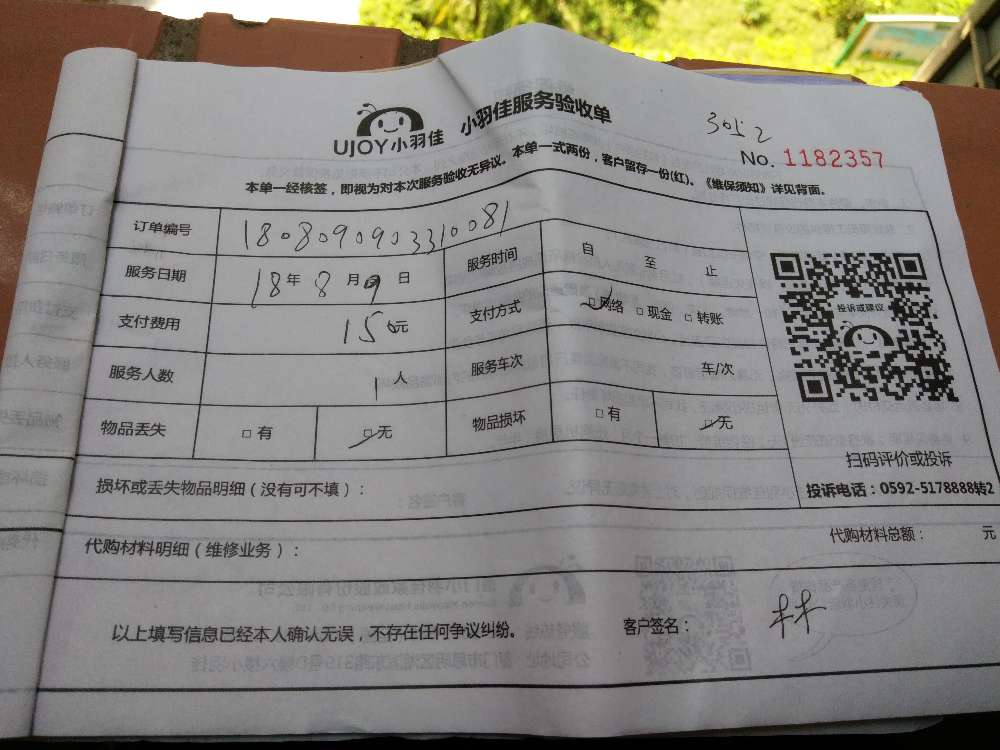 UJOY小羽佳 小羽佳服务验收单
3052
No. 1182357
本单一经核签，即视为对本次服务验收无异议。本单一式两份，客户留存一份(红)。《维保须知》详见背面。
订单编号 1808090903310081
服务日期 18年8月9日 服务时间 自 至 止
支付费用 150元 支付方式 ☑网络 □现金 □转账
服务人数 1人 服务车次 车/次
物品丢失 □有 ☑无 物品损坏 □有 ☑无
投诉或建议
扫码评价或投诉
投诉电话：0592-5178888转2
损坏或丢失物品明细（没有可不填）：
代购材料明细（维修业务）： 代购材料总额： 元
以上填写信息已经本人确认无误，不存在任何争议纠纷。 客户签名： 林